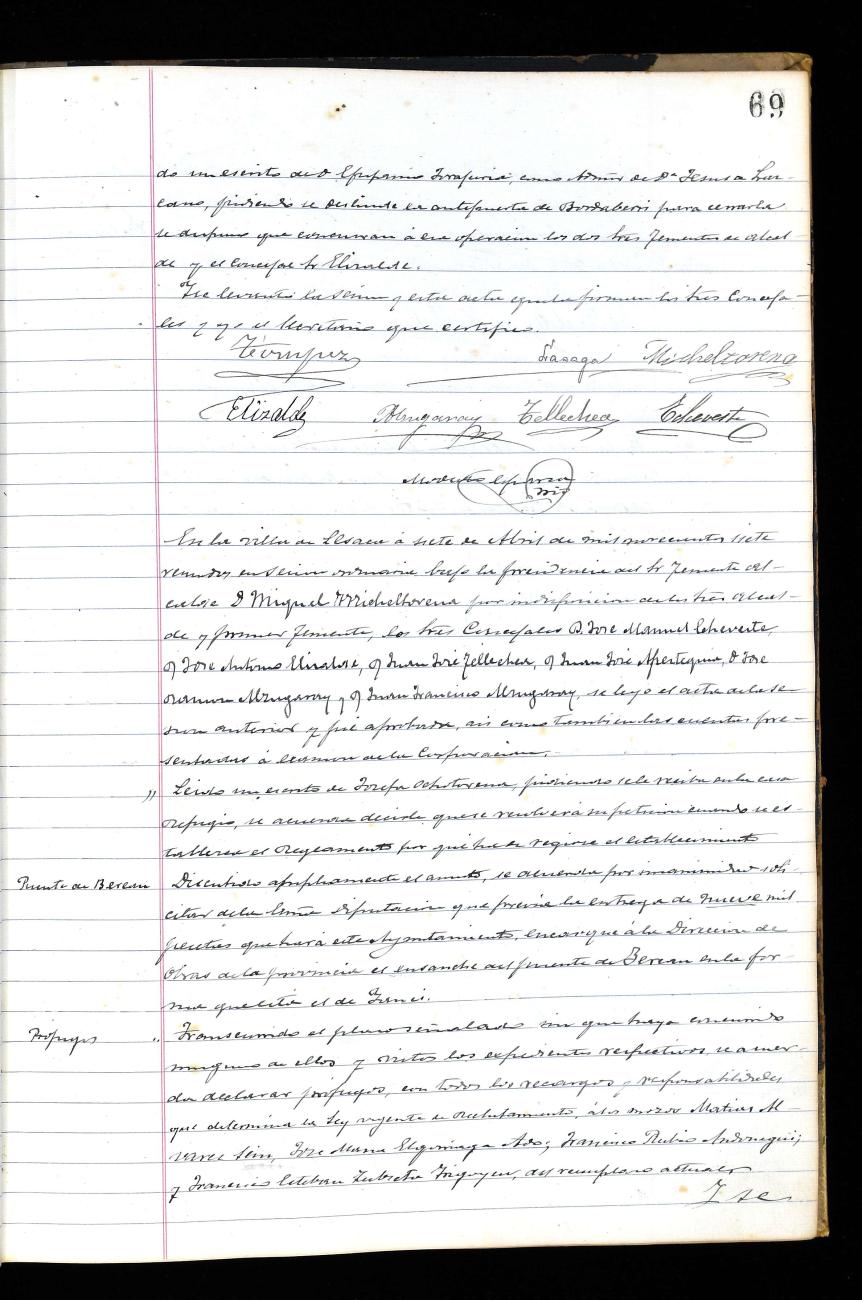 69
do un escrito de D. Epifanio Irazuria, como Admor de Dª Jesusa Las-
cano, pidiendo se deslinde la antepuerta de Bordaberri para cerrarla
se dispuso que concurran á la operación los dos Sres Tenientes de Alcal-
de y el Concejal Sr Elizalde.
Y se levantó la sesión y esta acta que la firman los Sres Conceja-
les y yo el Secretario que certifico.
Lasaga Micheltorena
Elizalde Almgaray Tellechea Echeveste
Modesto Esparza
Srio
En la villa de Lesaca á siete de Abril de mil novecientos siete
reunidos en sesión ordinaria bajo la presidencia del Sr Teniente Al-
calde D Miguel Micheltorena por indisposición de los Sres Alcal-
de y primer Teniente, los Sres Concejales D. José Manuel Echeveste,
D José Antonio Elizalde, D Juan José Tellechea, D Juan José Apesteguia, D José
Ramon Almgaray y D Juan Francisco Almgaray, se leyó el acta de la se-
sion anterior y fué aprobada, asi como tambien las cuentas pre-
sentadas á examen de la Corporación.
" Leido un escrito de Josefa Ochotorena, pidiendo se le reciba en la casa
Refugio, se acuerda decirle que se resolverá su peticion cuando se es-
tablezca el Reglamento por que ha de regirse el establecimiento
Puente de Berean Discutido ampliamente el asunto, se acuerda por unanimidad soli-
citar de la Excma Diputación que previa la entrega de nueve mil
pesetas que hará este Ayuntamiento, encargue á la Direccion de
Obras de la provincia el ensanche del puente de Berean en la for-
ma que está el de Franci.
Prófugos " Transcurrido el plazo señalado sin que haya concurrido
ninguno de ellos y vistos los expedientes respectivos, se acuer-
da declarar prófugos, con todos los recargos y responsabilidades
que determina la Ley vigente de Reclutamiento, á los mozos Matias Al-
varez Sein, José Maria Elgorriaga Ado; Francisco Rubio Andonegui;
y Francisco Esteban Zubieta Irigoyen, del reemplazo actual.
Y se